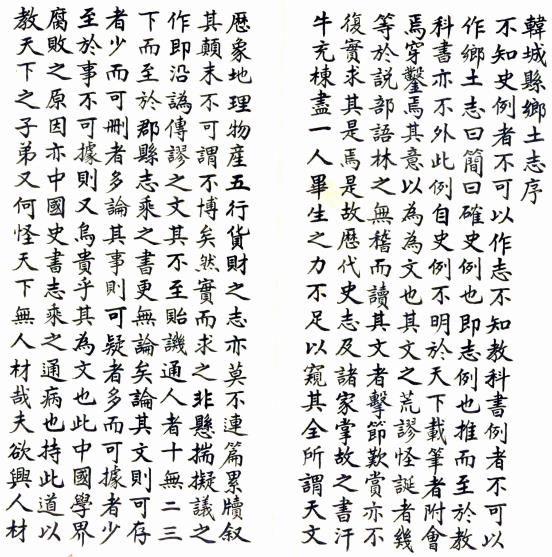 韓城縣鄉土志序
不知史例者不可以作志不知教科書例者不可以
作鄉土志曰簡曰確史例也即志例也推而至於教
科書亦不外此例自史例不明於天下載筆者附會
焉穿鑿焉其意以為為文也其文之荒謬怪誕者幾
等於說部語林之無稽而讀其文者擊節歎賞亦不
復實求其是焉是故歷代史志及諸家掌故之書汗
牛充棟盡一人畢生之力不足以窺其全所謂天文
歷象地理物產五行貨財之志亦莫不連篇累牘叙
其顛末不可謂不博矣然實而求之非懸揣擬議之
作即沿譌傳謬之文其不至貽譏通人者十無二三
下而至於郡縣志乘之書更無論矣論其文則可存
者少而可刪者多論其事則可疑者多而可據者少
至於事不可據則又烏貴乎其為文也此中國學界
腐敗之原因亦中國史書志乘之通病也持此道以
教天下之子弟又何怪天下無人材哉夫欲興人材